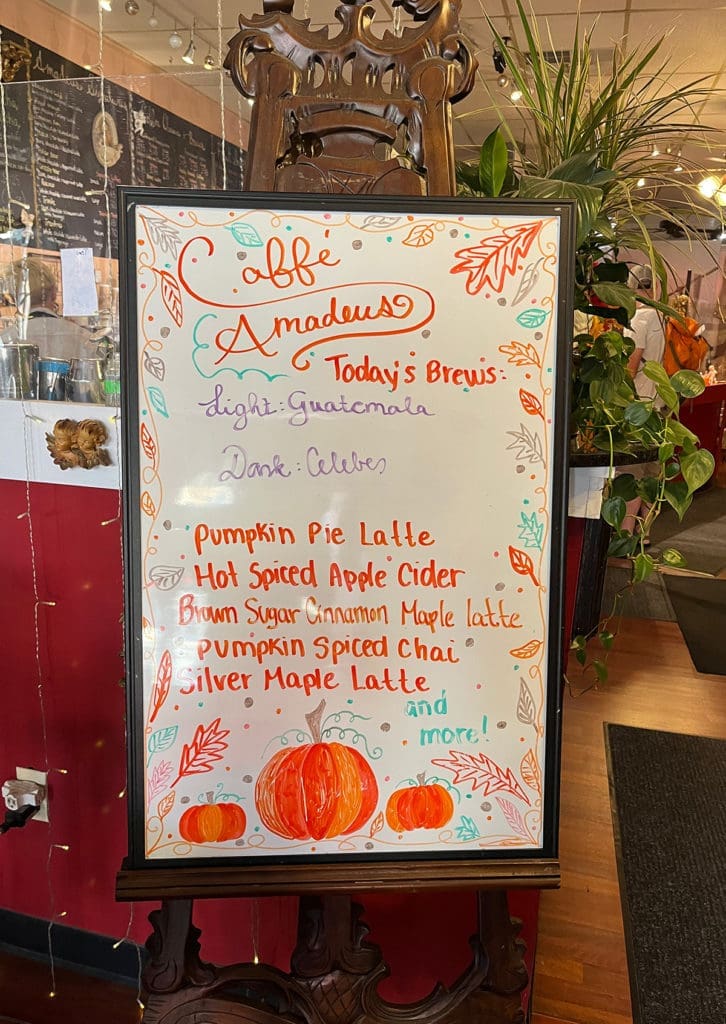 Caffé
Amadeus
Today's Brews:
Light: Guatemala
Dark: Celebes
Pumpkin Pie Latte
Hot Spiced Apple Cider
Brown Sugar Cinnamon Maple latte
Pumpkin Spiced Chai
Silver Maple Latte
and
more!